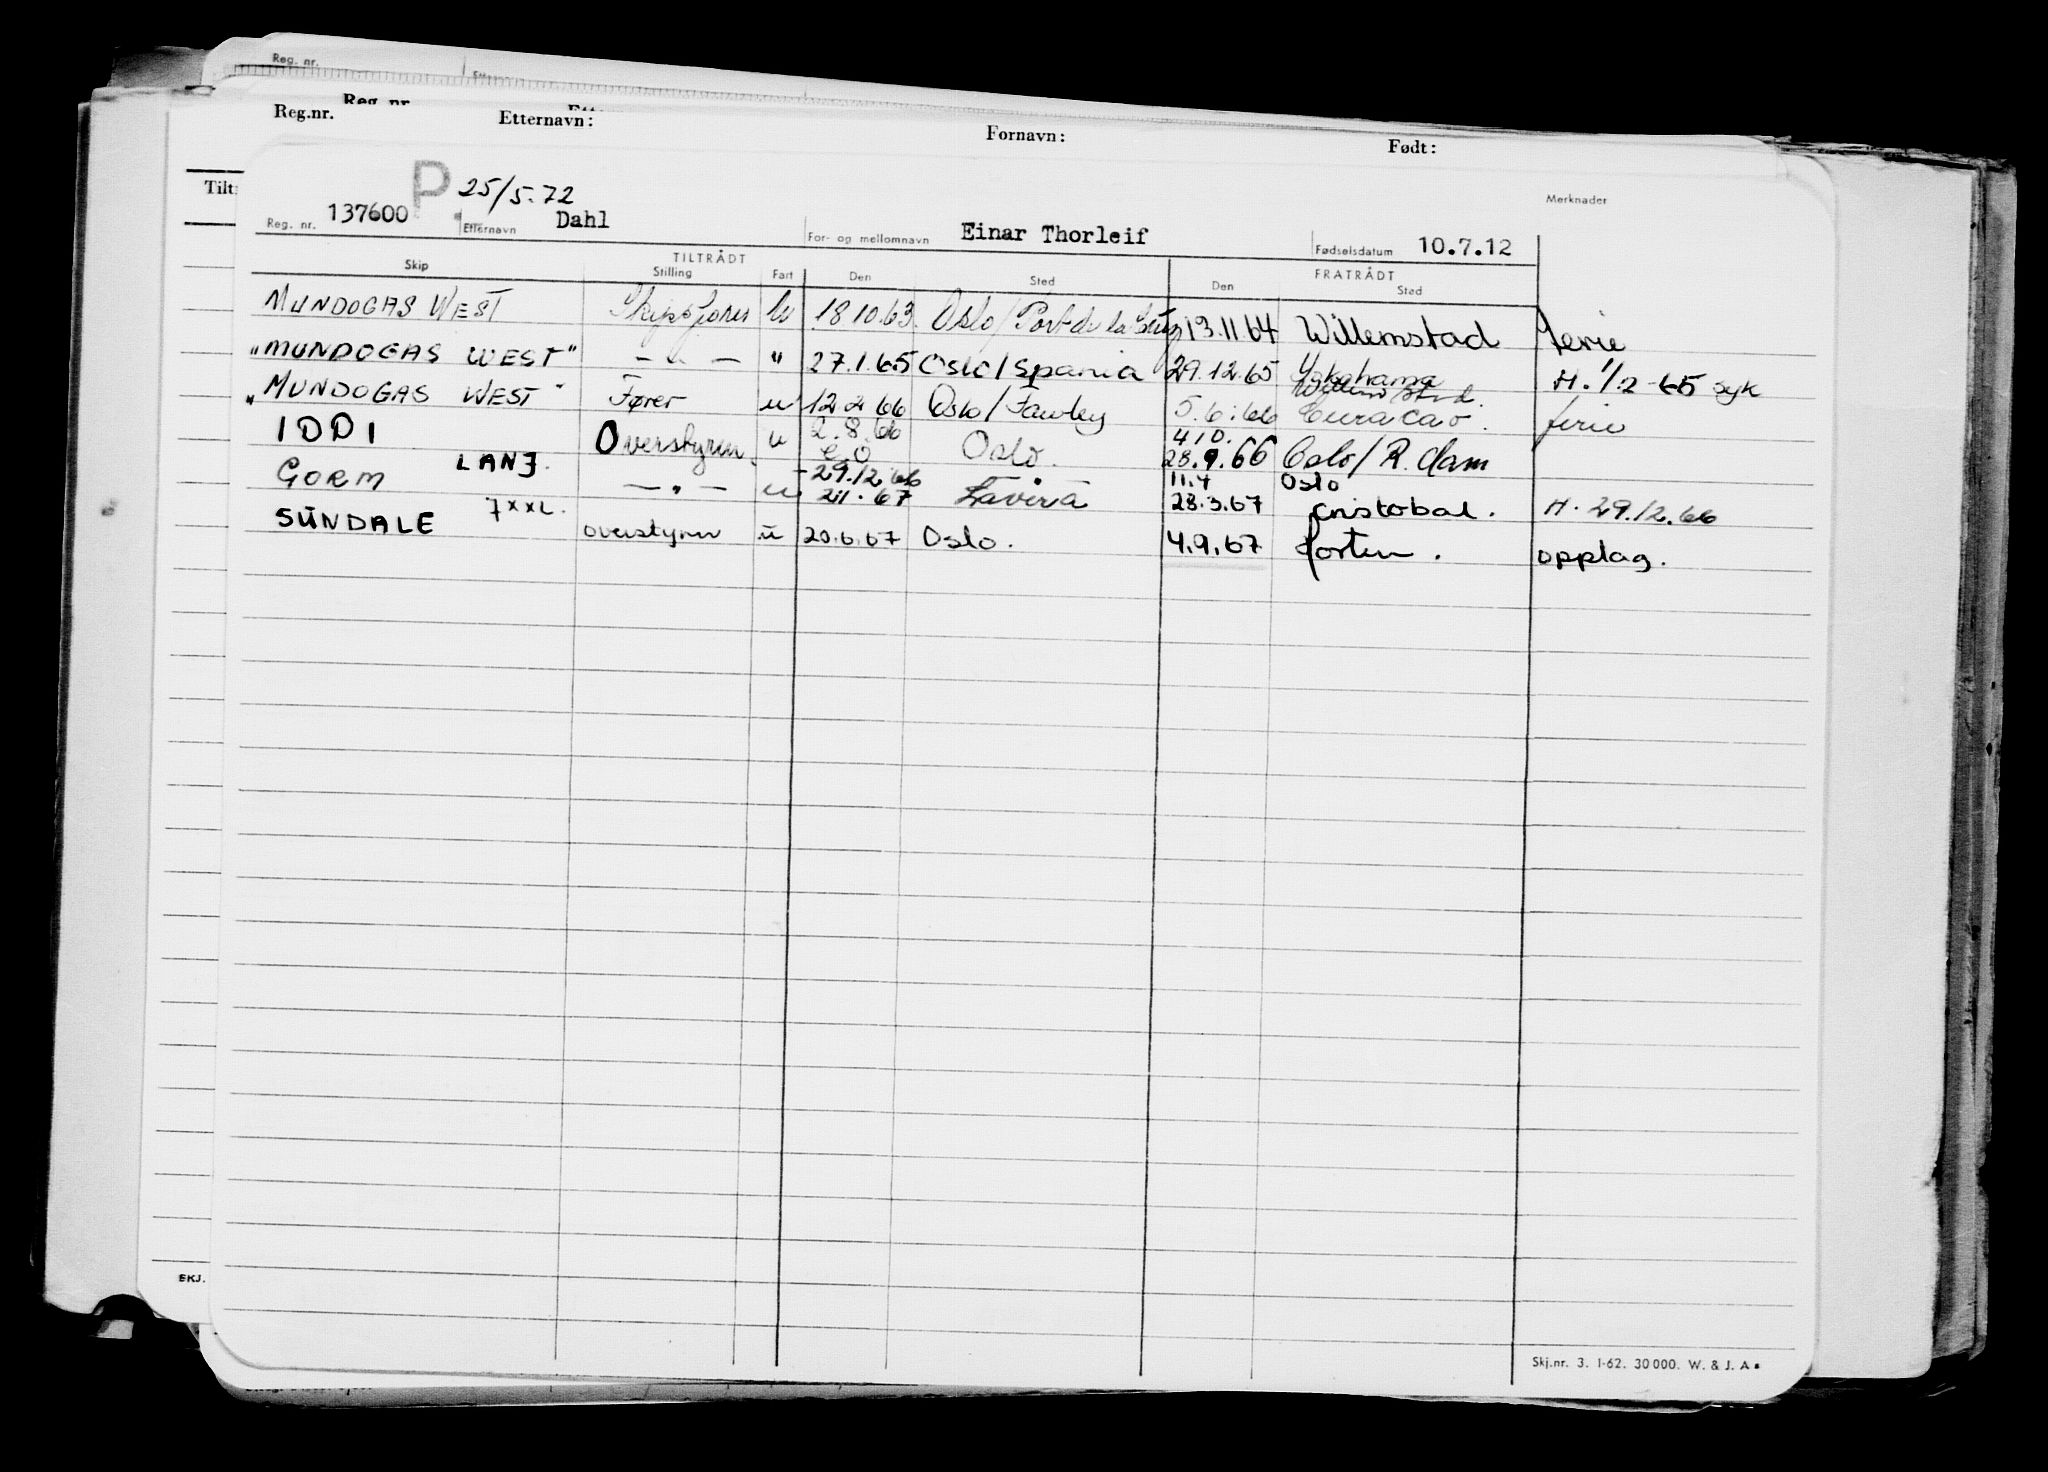 Reg. nr.
Reg. nr.
Reg.nr. Etternavn: Fornavn: Født:
P 25/5.72 Merknader
Reg. nr. 137600 Etternavn Dahl For- og mellomnavn Einar Thorleif Fødselsdatum 10.7.12
TILTRÅDT FRATRÅDT
Skip Stilling Fart Den Sted Den Sted
MUNDOGAS WEST Skipsfører u 18.10.63. Oslo/Port de la 13.11.64 Willemstad ferie
"MUNDOGAS WEST" — " — " 27.1.65 Oslo/Spania 29.12.65 Yokohama H. 1/2-65 syk
"MUNDOGAS WEST" Fører u 12.2.66 Oslo/Fawley 5.6.66 Curacao. ferie
IDDI LANJ. Overstyrm. u 2.8.66 Oslo. 28.9.66 Oslo/R.dam
29.12.66 11.4 Oslo
GORM 7xxL. — " — u 2.1.67 28.3.67 Cristobal. H. 29.12.66
SUNDALE overstyrm u 20.6.67 Oslo. 4.9.67 Horten. opplag.
SKJ.
Skj.nr. 3. 1-62. 30 000. W. & J. A.